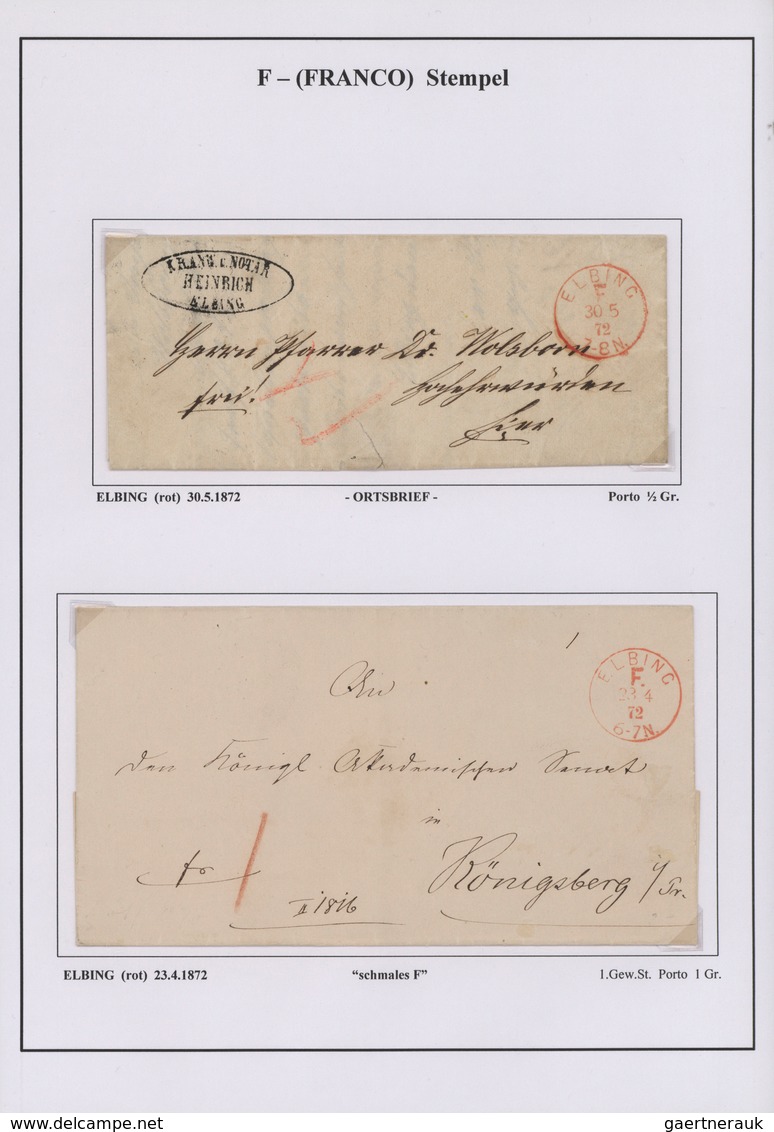 F – (FRANCO) Stempel
KR.ANW. u. NOTAR
HEINRICH
ELBING
ELBING
F.
30 5
72
-8N.
Herrn Pfarrer Dr. Wolsborn
frei!
Hochehrwürden
hier
ELBING (rot) 30.5.1872 - ORTSBRIEF - Porto ½ Gr.
1
ELBING
F.
23 4
72
6-7N.
An
den Königl. Akademischen Senat
in
fr
Königsberg i/Pr.
II 1816
ELBING (rot) 23.4.1872 “schmales F” 1.Gew.St. Porto 1 Gr.
gaertnerauk